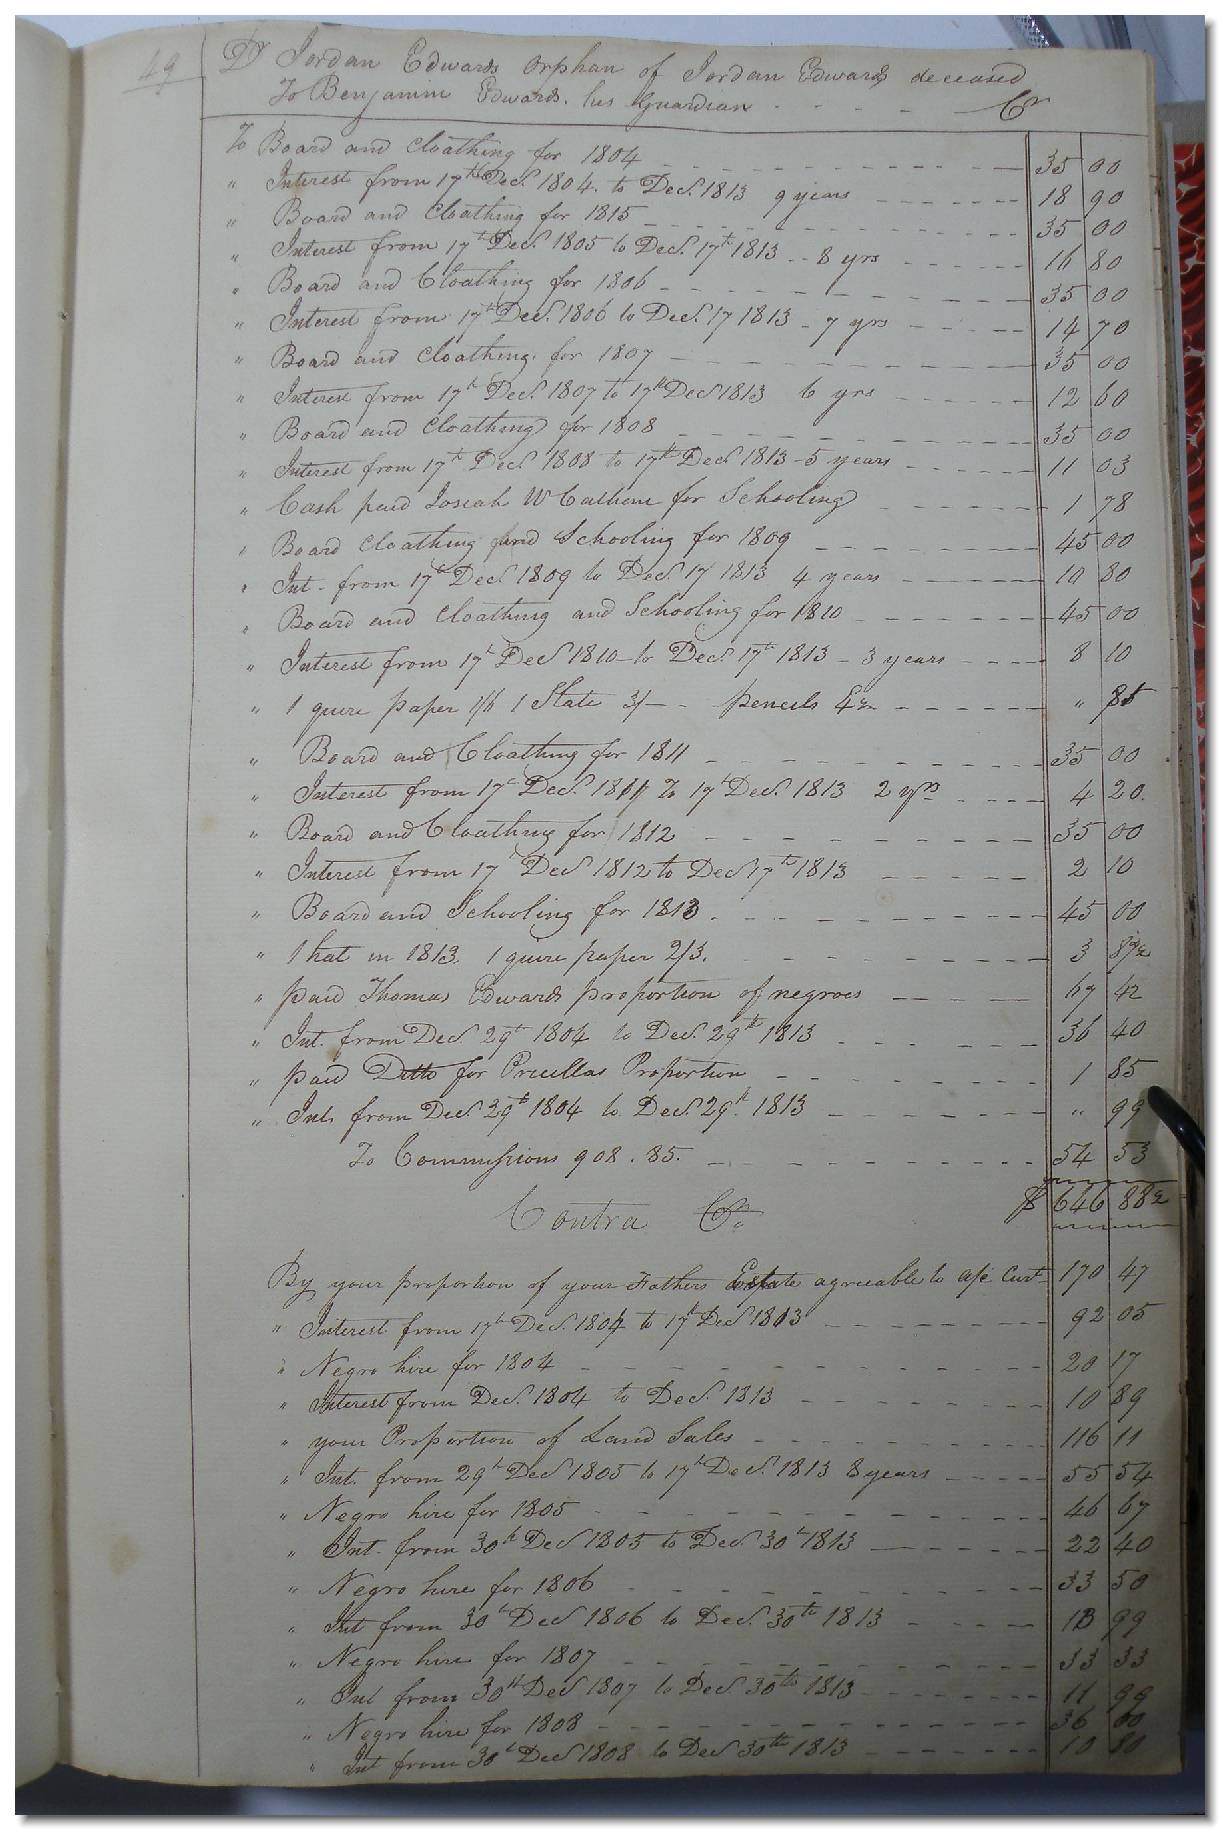 49
Dr Jordan Edwards orphan of Jordan Edwards deceased
To Benjamin Edwards his Guardian - - - - Cr
To Board and Cloathing for 1804 - - - 35 00
" Interest from 17th Decr. 1804 to Decr. 1813 9 years - - - 18 90
" Board and Cloathing for 1815 - - - 35 00
" Interest from 17th Decr. 1805 to Decr. 17th 1813 - - 8 yrs - - - 16 80
" Board and Cloathing for 1806 - - - 35 00
" Interest from 17th Decr. 1806 to Decr. 17 1813 - 7 yrs - - - 14 70
" Board and Cloathing for 1807 - - - 35 00
" Interest from 17th Decr. 1807 to 17th Decr 1813 6 yrs - - - 12 60
" Board and Cloathing for 1808 - - - 35 00
" Interest from 17th Decr 1808 to 17th Decr 1813 - 5 years - - - 11 03
" Cash paid Josiah W for Schooling - - - 1 78
" Board Cloathing and Schooling for 1809 - - - 45 00
" Int. from 17th Decr 1809 to Decr. 17 1813 4 years - - - 10 80
" Board and Cloathing and Schooling for 1810 - - - 45 00
" Interest from 17th Decr 1810 to Decr. 17th 1813 - 3 years - - - 8 10
" 1 quire paper 1/6 1 Slate 3/- - pencils - - - " 85
" Board and Cloathing for 1811 - - - 35 00
" Interest from 17th Decr. 1811 to 17th Decr. 1813 2 yrs - - - 4 20
" Board and Cloathing for 1812 - - - 35 00
" Interest from 17th Decr 1812 to Decr 17th 1813 - - - 2 10
" Board and Schooling for 1813 - - - 45 00
" 1 hat in 1813. 1 quire paper 2/3. - - - 3
" paid Thomas Edwards proportion of negroes - - - 67 42
" Int. from Decr 29th 1804 to Decr. 29th 1813 - - - 36 40
" paid Ditto for Pricellas Proportion - - - 1 85
" Int. from Decr 29th 1804 to Decr 29th 1813 - - - " 99
To Commissions 908.85. - - - 54 53
Contra Cr. $ 646 88½
By your proportion of your Fathers Estate agreeable to a/c Curt 170 47
" Interest from 17th Decr. 1804 to 17th Decr 1813 - - - 92 05
" Negro hire for 1804 - - - 20 17
" Interest from Decr. 1804 to Decr. 1813 - - - 10 89
" your Proportion of Land Sales - - - 116 11
" Int. from 29th Decr 1805 to 17th Decr. 1813 8 years - - - 55 54
" Negro hire for 1805 - - - 46 67
" Int. from 30th Decr 1805 to Decr. 30th 1813 - - - 22 40
" Negro hire for 1806 - - - 33 50
" Int from 30th Decr 1806 to Decr. 30th 1813 - - - 13 99
" Negro hire for 1807 - - - 33 33
" Int from 30th Decr 1807 to Decr. 30th 1813 - - - 11 99
" Negro hire for 1808 - - - 36 00
" Int from 30th Decr 1808 to Decr 30th 1813 - - - 10 80